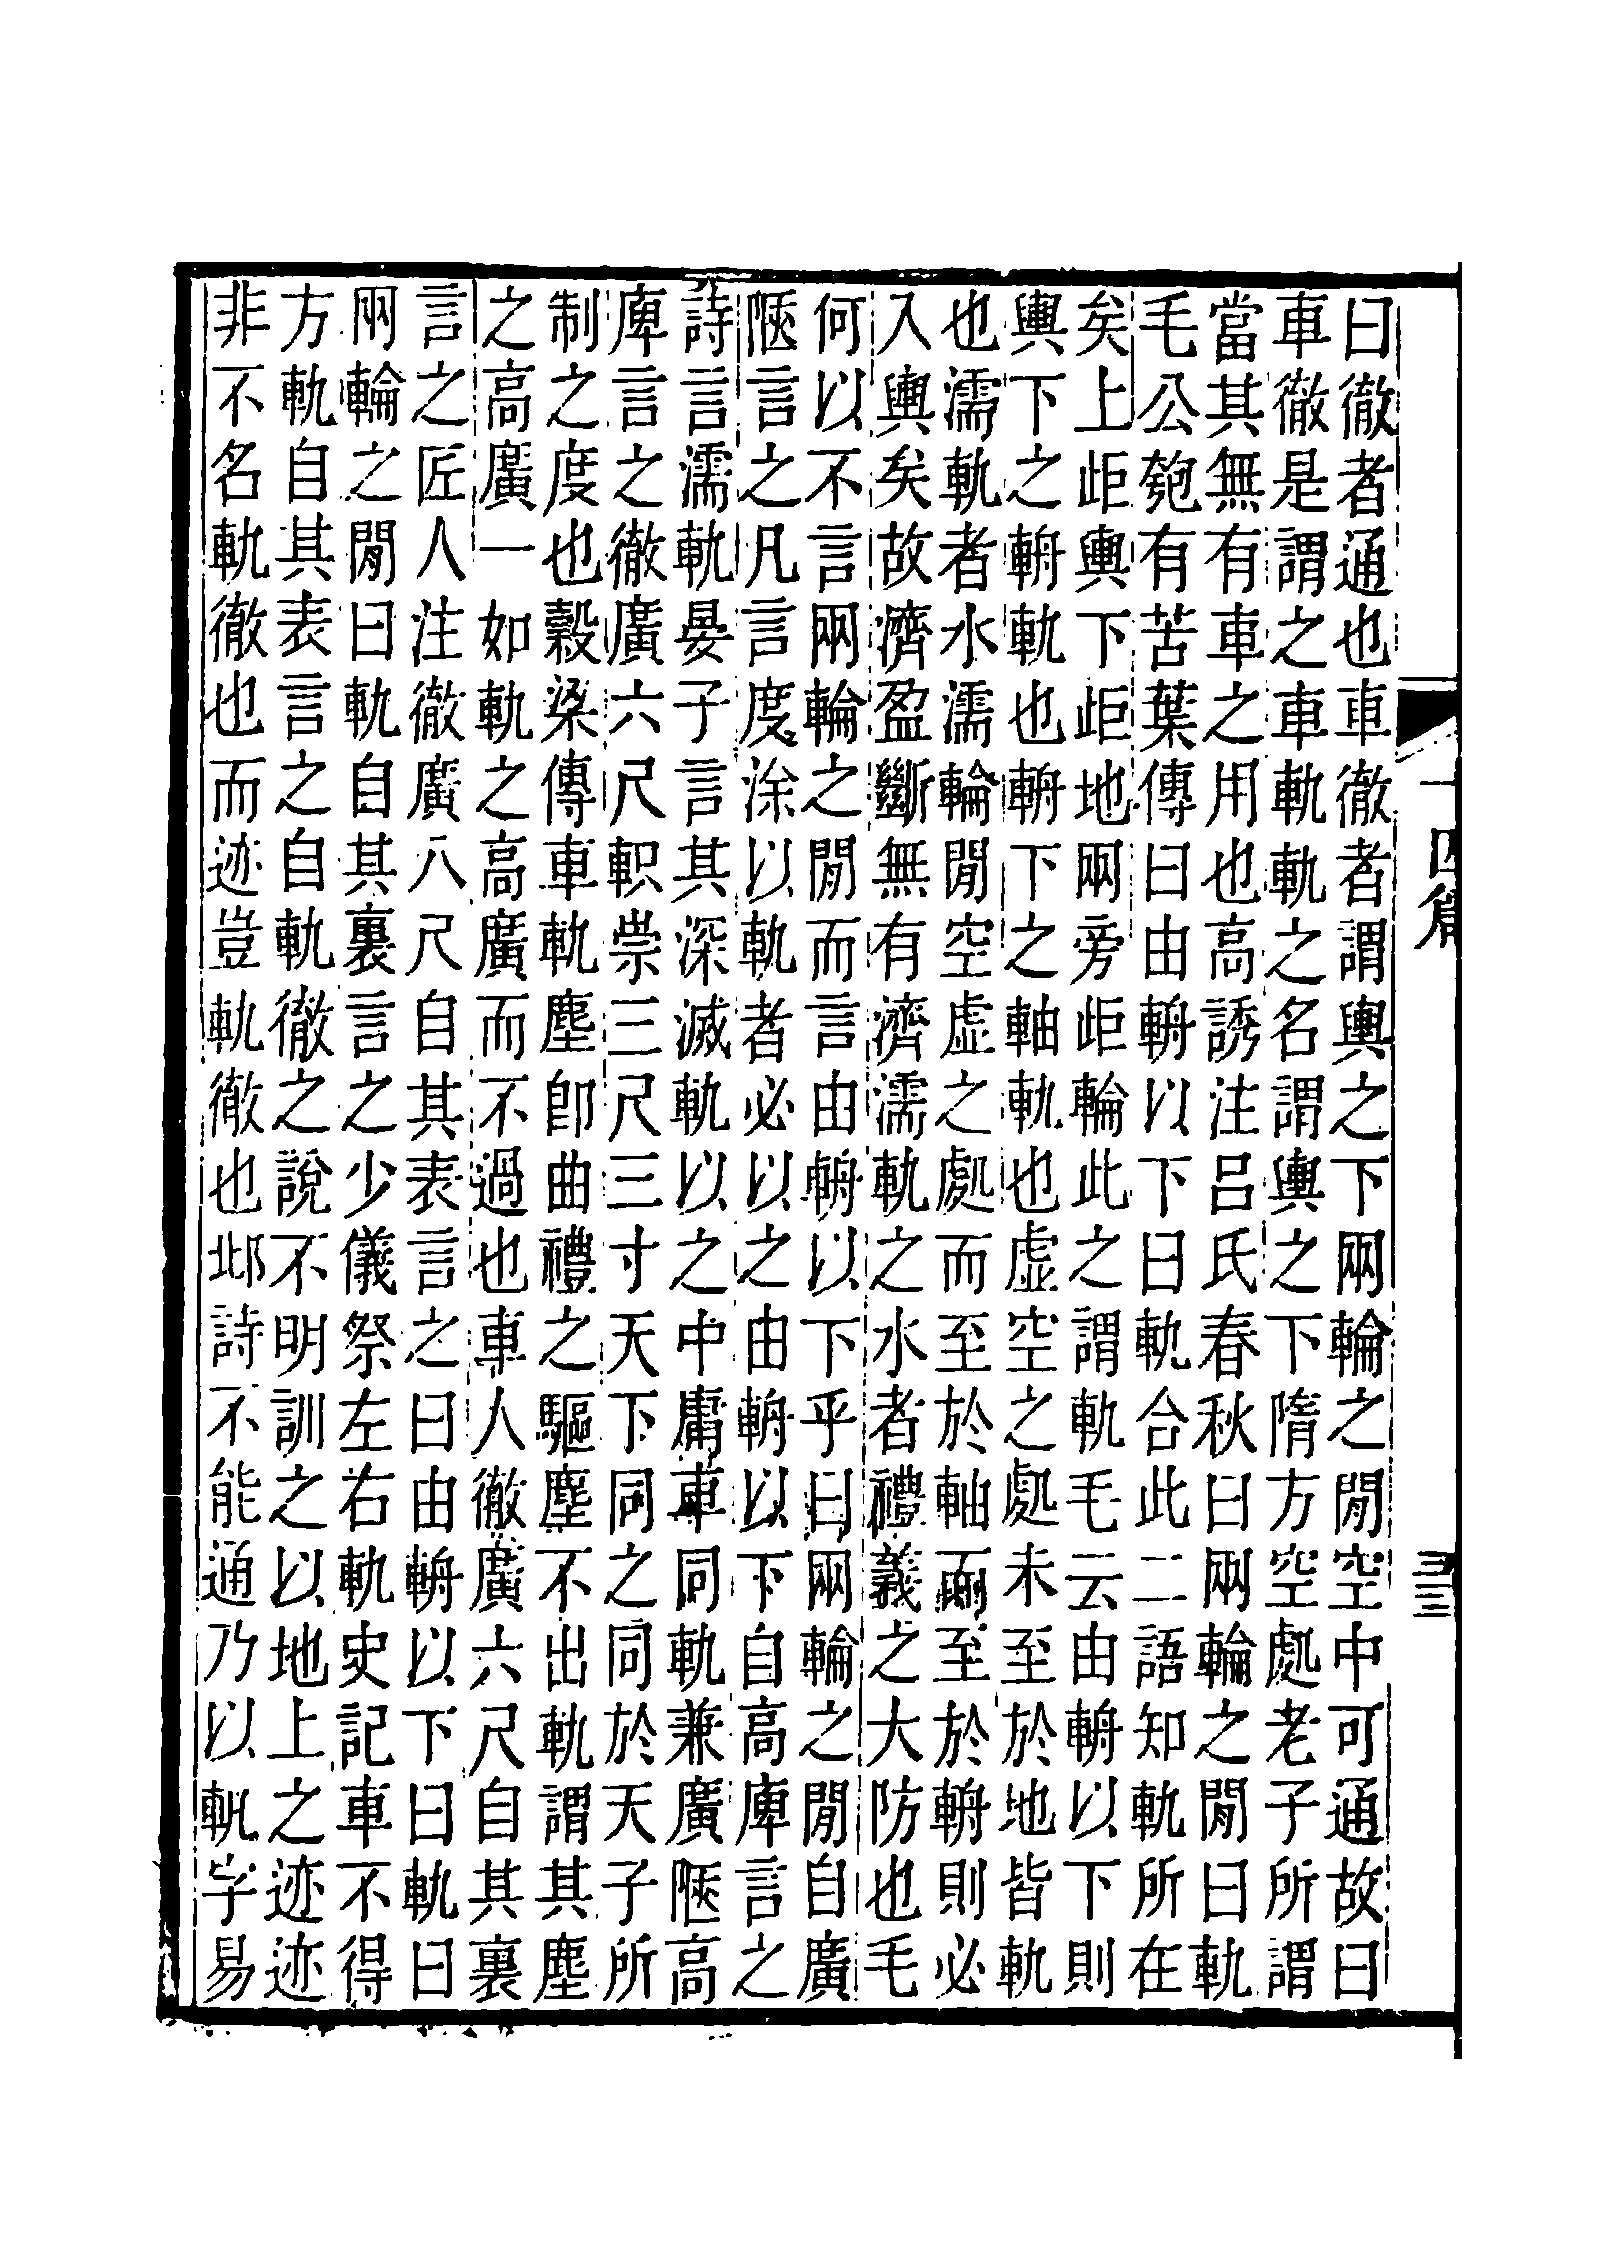 曰徹者通也車徹者謂輿之下兩輪之閒空中可通故曰
車徹是謂之車軌軌之名謂輿之下隋方空處老子所謂
當其無有車之用也高誘注吕氏春秋曰兩輪之閒曰軌
毛公匏有苦葉傳曰由輈以下曰軌合此二語知軌所在
矣上歫輿下歫地兩旁歫輪此之謂軌毛云由輈以下則
輿下之輈軌也輈下之軸軌也虛空之處未至於地皆軌
也濡軌者水濡輪閒空虛之處而至於軸而至於輈則必
入輿矣故濟盈斷無有濟濡軌之水者禮義之大防也毛
何以不言兩輪之閒而言由輈以下乎曰兩輪之閒自廣
陿言之凡言度涂以軌者必以之由輈以下自高庳言之
詩言濡軌晏子言其深滅軌以之中庸車同軌兼廣陿高
庳言之徹廣六尺軹崇三尺三寸天下同之同於天子所
制之度也穀梁傳車軌塵卽曲禮之驅塵不出軌謂其塵
之高廣一如軌之高廣而不過也車人徹廣六尺自其裏
言之匠人注徹廣八尺自其表言之曰由輈以下曰軌曰
兩輪之閒曰軌自其裏言之少儀祭左右軌史記車不得
方軌自其表言之自軌徹之說不明訓之以地上之迹迹
非不名軌徹也而迹豈軌徹也邶詩不能通乃以軓字易
十四篇